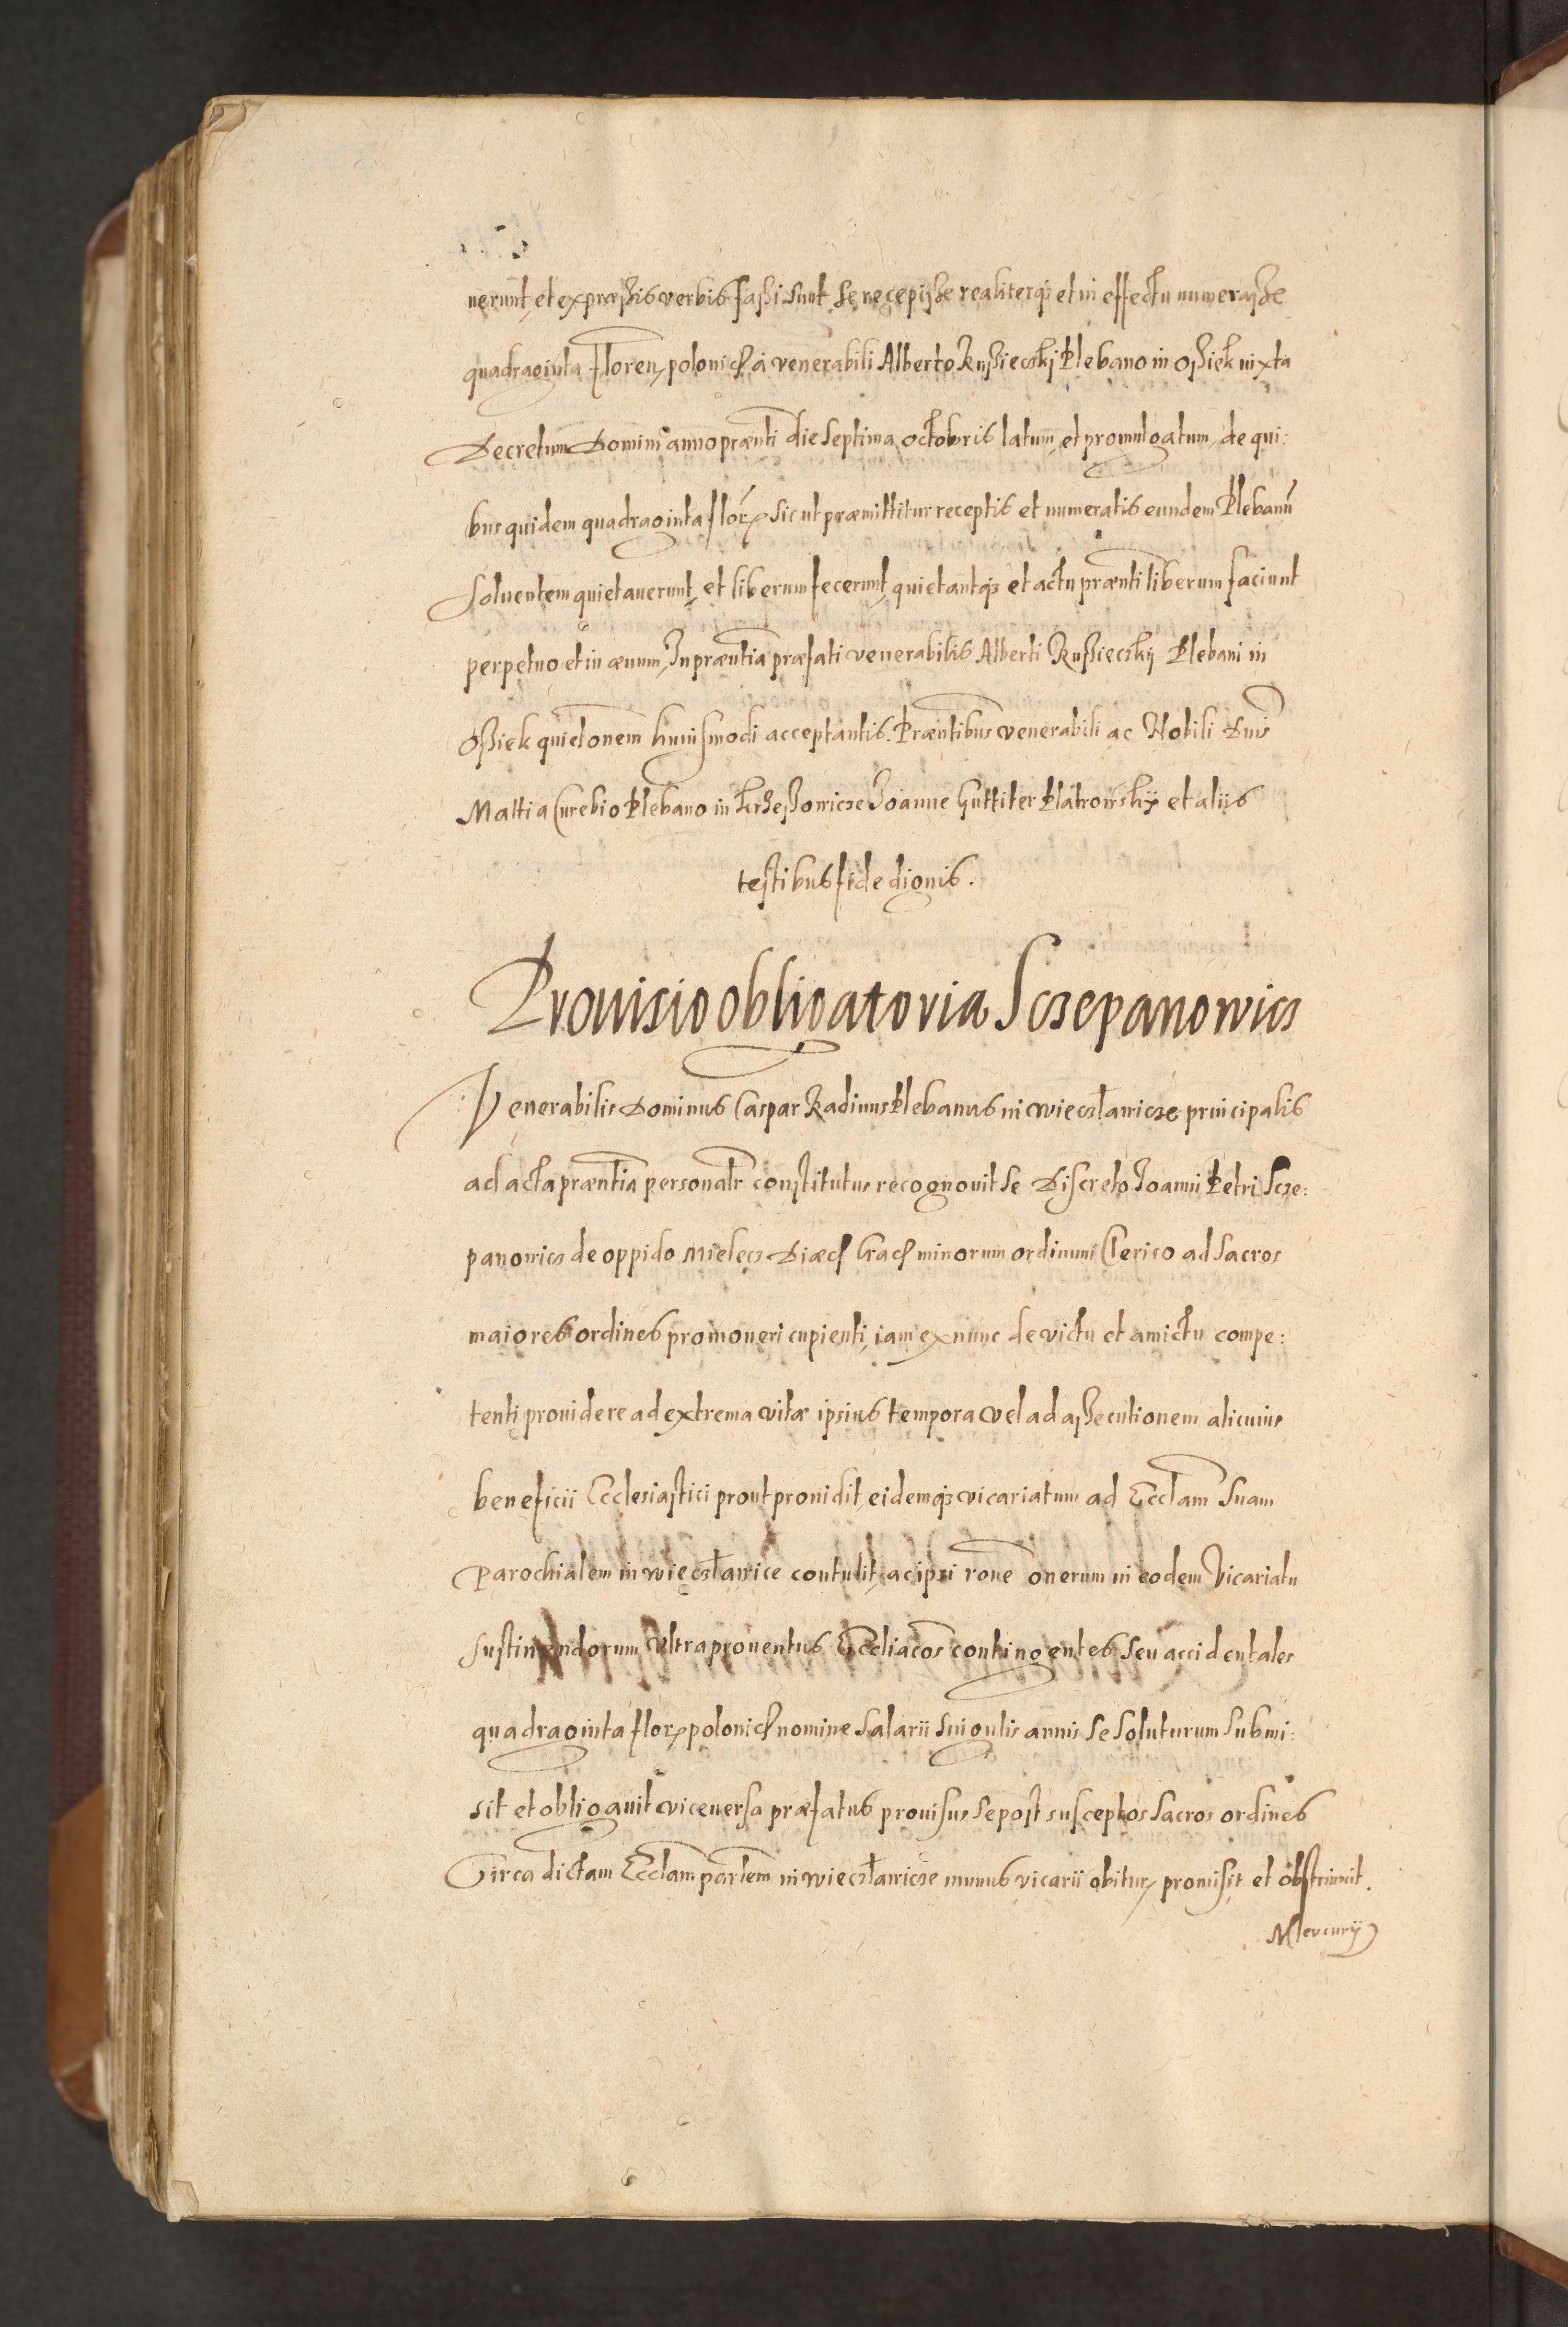 uerunt, et expraessis verbis fassi sunt se recepisse realiterq3 et in effectu numerasse
quadraginta floren, polonic a venerabili Alberto Russieczkj Plebano in Ossiek iuxta
Decretum Domini anno praenti die septima octobris latum, et promulgatum, de qui:
bus quidem quadraginta flor, sicut praemittitur receptis et numeratis eundem Plebanu
soluentem quietauerunt, et liberum fecerunt, quietantq3 et actu praenti liberum faciunt
perpetuo et in aeuum, In praentia praefati venerabilis Alberti Russieczkij Plebani in
Ossiek quietonem huiusmodi acceptantis. Praentibus venerabili ac Nobili Dnis
Mattia Curebio Plebano in Joanne Guttiter Platrowskij et aliis
testibus fide dignis.
Prouisio obligatoria Sczepanowics
Venerabilis Dominus Caspar Radinus Plebanus in Wieczławicze principalis
ad acta praentia personalr constitutus recognouit se Discreto Joanni Petri Scze:
panowics de oppido Mielecz Diaec Crac minorum ordinum Clerico ad sacros
maiores ordines promoueri cupienti, iam ex nunc de victu et amictu compe:
tenti prouidere ad extrema vitae ipsius tempora vel ad assecutionem alicuius
beneficii Ecclesiastici prout prouidit, eidemq3 vicariatum ad Ecclam suam
Parochialem in Wieczławice contulit, ac ipsi rone onerum in eodem Vicariatu
sustinendorum vltra prouentus Eccliacos contingentes seu accidentales
quadraginta flor, polonic nomine salarii singulis annis se soluturum submi:
sit et obligauit viceuersa praefatus prouisus se post susceptos sacros ordines
Circa dictam Ecclam parlem in Wieczławicze munus vicarii obitur, promisit et obstrinxit.
Mercurij